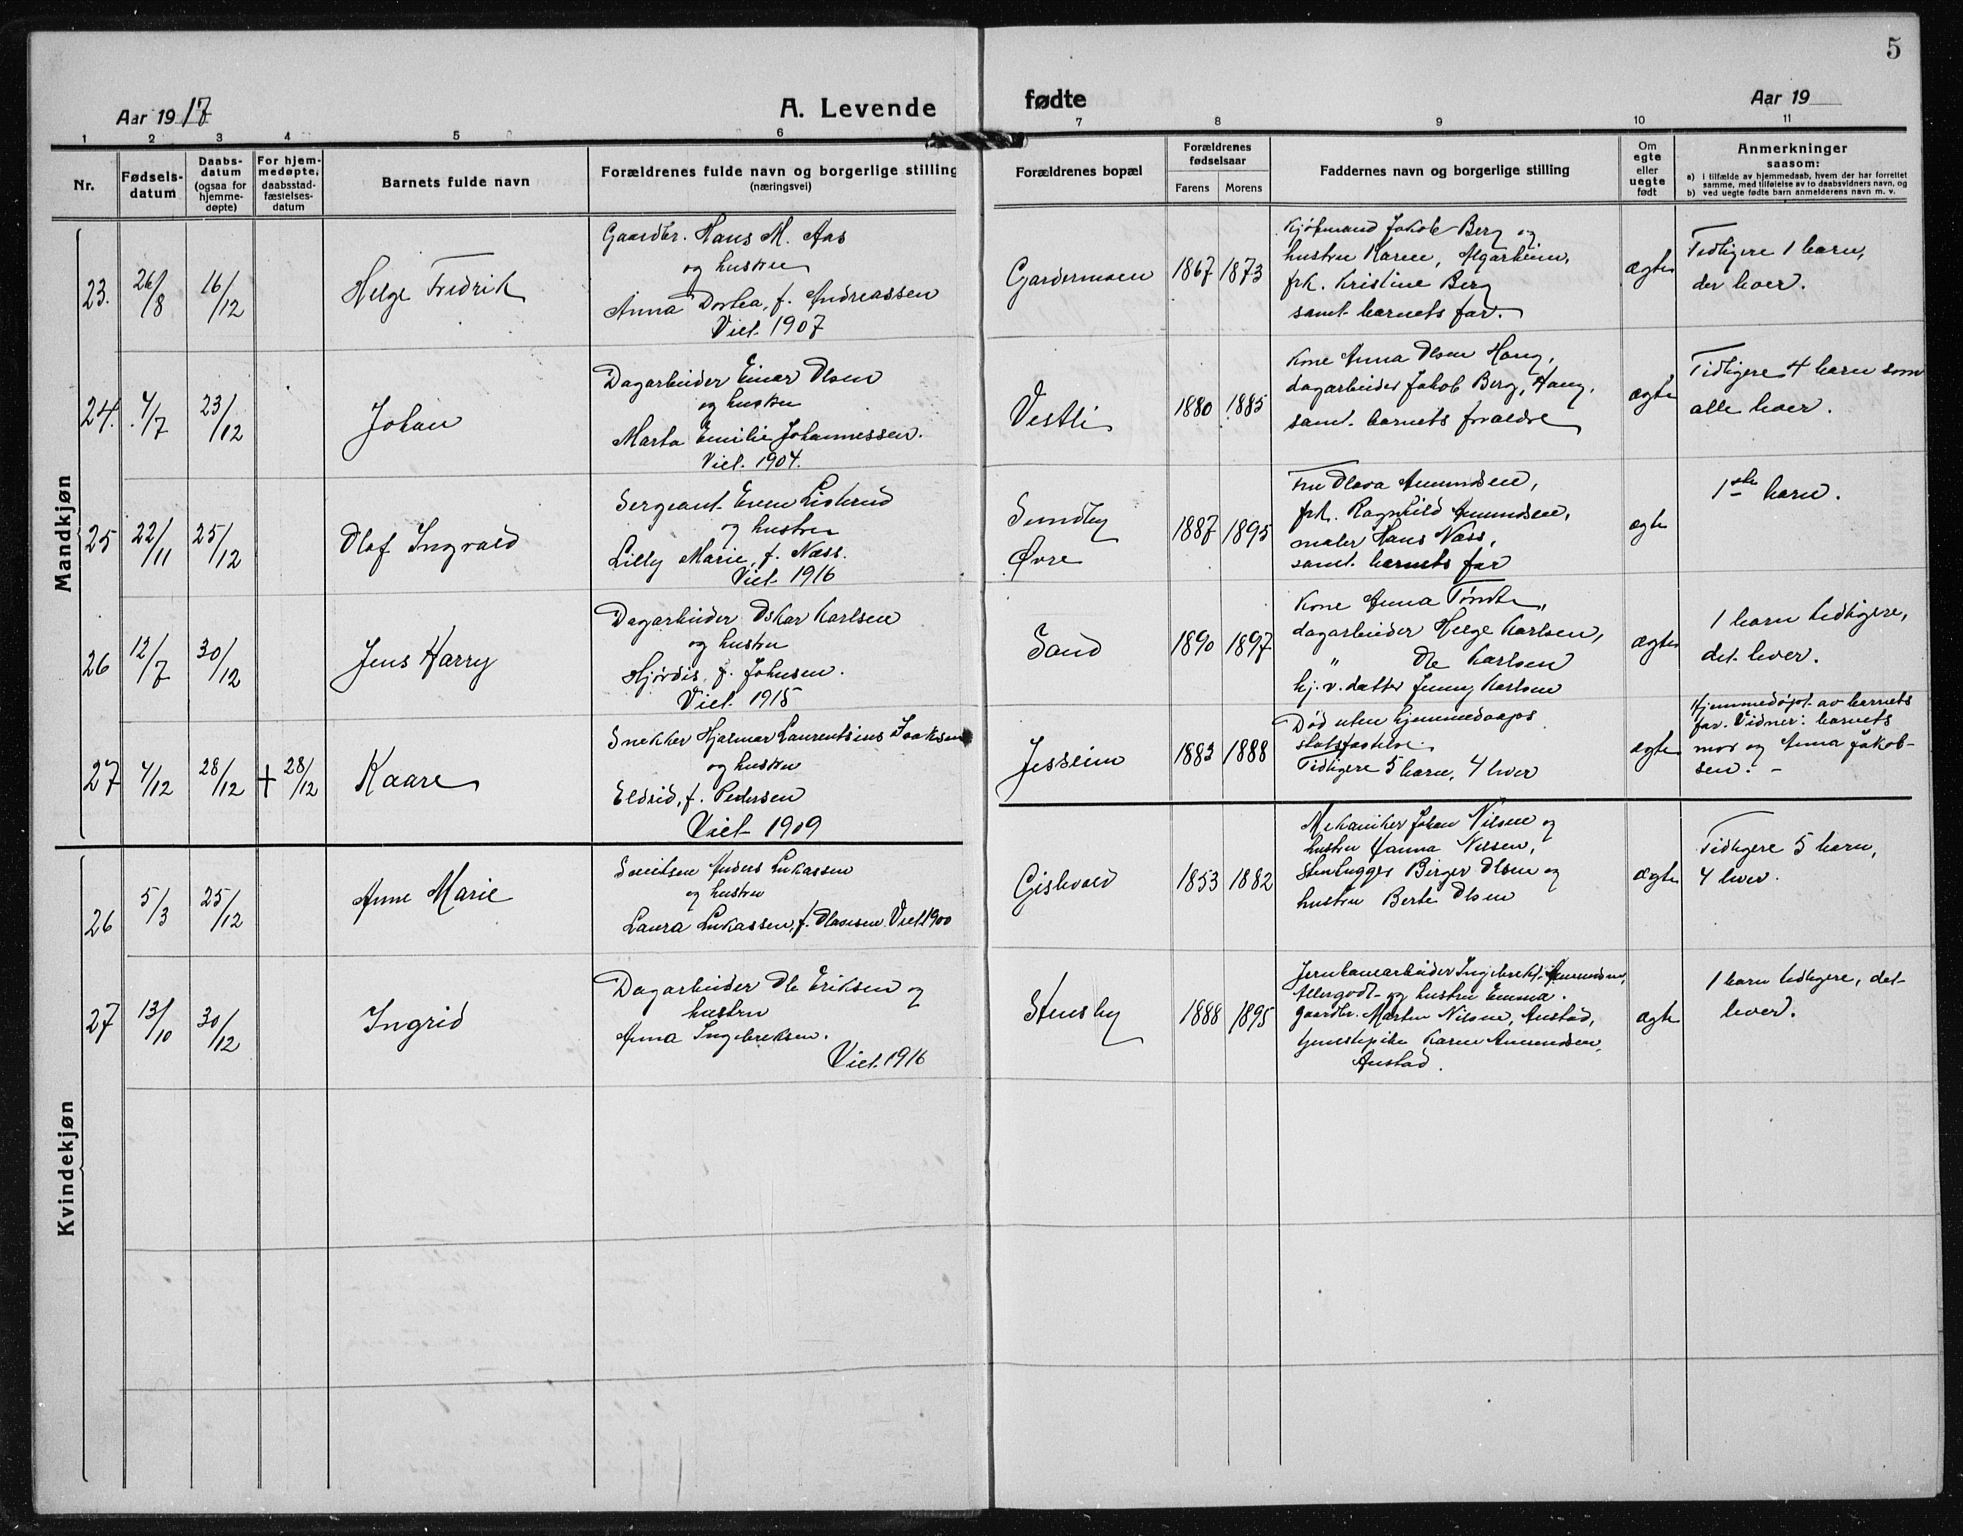 5
Aar 1917
A. Levende
fødte
Aar 19
1 2 3 4 5 6 7 8 9 10 11
Nr.
Fødsels-
datum
Daabs-
datum
(ogsaa for
hjemme-
døpte)
For hjem-
medøpte,
daabsstad-
fæstelses-
datum
Barnets fulde navn
Forældrenes fulde navn og borgerlige stilling
(næringsvei)
Forældrenes bopæl
Forældrenes
fødselsaar
Farens Morens
Faddernes navn og borgerlige stilling
Om
egte
eller
uegte
født
Anmerkninger
saasom:
a) i tilfælde av hjemmedaab, hvem der har forrettet
samme, med tilføielse av to daabsvidners navn, og
b) ved uegte fødte barn anmelderens navn m. v.
Mandkjøn
23. 26/8 16/12
Helge Fredrik
Gaardbr. Hans M. Aas
og hustru
Anna Dorthea, f. Andreassen
Viet 1907
Gardermoen
1867 1873
Kjøbmand Jakob Berg og
hustru Karen, Algarheim,
frk. Kristine Berg
samt barnets far.
ægte
Tidligere 1 barn,
der lever.
24. 4/7 23/12
Johan
Dagarbeider Einar Olsen
og hustru
Marta Emilie Johannessen.
Viet 1904.
Vestli
1880 1885
Kone Anna Olsen Haug,
dagarbeider Jakob Berg, Haug,
samt barnets foraldre
ægte
Tidligere 4 barn som
alle lever.
25 22/11 25/12
Olaf Ingvald
Sergeant Even
og hustru
Lilly Marie, f. Næss.
Viet 1916
Sundby
Øvre
1887 1895
Fru Olava Amundsen,
frk. Ragnhild Amundsen,
maler Hans Næss,
samt barnets far
ægte
1ste barn.
26 12/7 30/12
Jens Harry
Dagarbeider Oskar Karlsen
og hustru
Hjørdis, f. Johnsen.
Viet 1915
Sand
1890 1897
Kone Anna
dagarbeider Helge Karlsen,
" Ole Karlsen
hj. v. datter Jenny Karlsen
ægte
1 barn tidligere,
det lever.
27 4/12 28/12 + 28/12
Kaare
Snekker Hjalmar Laurentsius Isaksen
og hustru
Eldrid, f. Pedersen
Viet 1909
Jessheim
1883 1888
Død uten hjemmedaaps
Tidligere 5 barn, 4 lever
ægte
Hjemmedøpt av barnets
far. Vidner: barnets
mor og Anna Jakob-
sen. -
Kvindekjøn
26 5/3 25/12
Anne Marie
Anders Lukassen
og hustru
Laura Lukassen, f. Olavesen Viet 1900
Gislevold
1853 1882
Mekaniker Johan Nilsen og
hustru Hanna Nilsen,
Stenhugger Birger Olsen og
hustru Berte Olsen
ægte
Tidligere 5 barn,
4 lever.
27 13/10 30/12
Ingrid
Dagarbeider Ole Eriksen og
hustru
Anna Ingebretsen.
Viet 1916
Stensby
1888 1895
Jernbanearbeider Ingebrekt Amundsen,
Allergodt og hustru Emma.
gaardbr. Martin Nilsen, Austad,
tjenestepike Karen Amundsen,
Austad.
ægte
1 barn tidligere, det
lever.